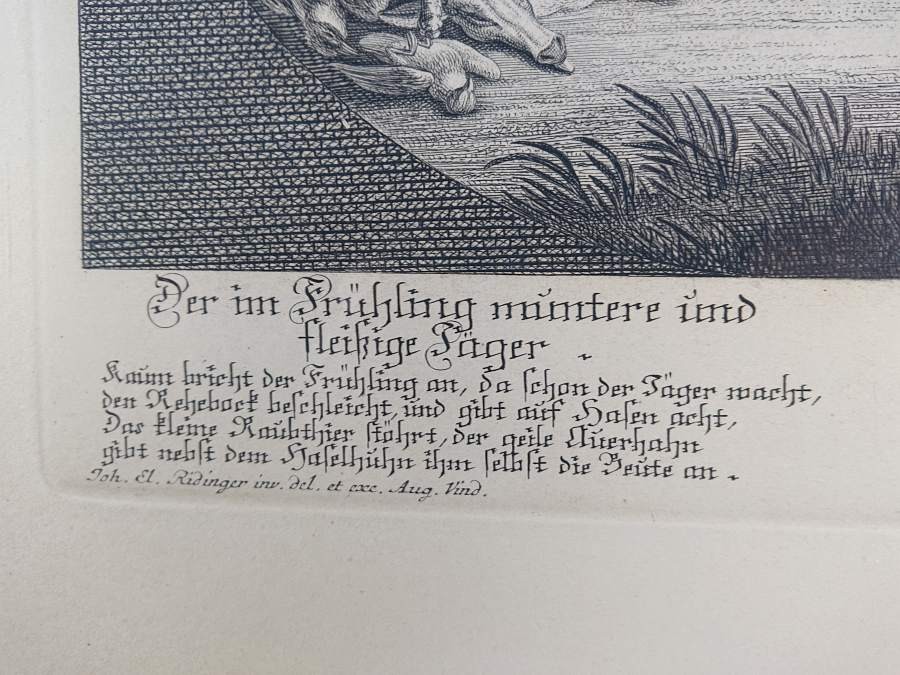 Der im Frühling muntere und
fleißige Jäger .
Kaum bricht der Frühling an, da schon der Jäger wacht,
den Rehebock beschleicht, und gibt auf Hasen acht,
Das kleine Raubthier stöhrt, der geile Auerhahn
gibt nebst dem Haselhuhn ihm selbst die Beute an .
Joh. El. Ridinger inv. del. et exc. Aug. Vind.